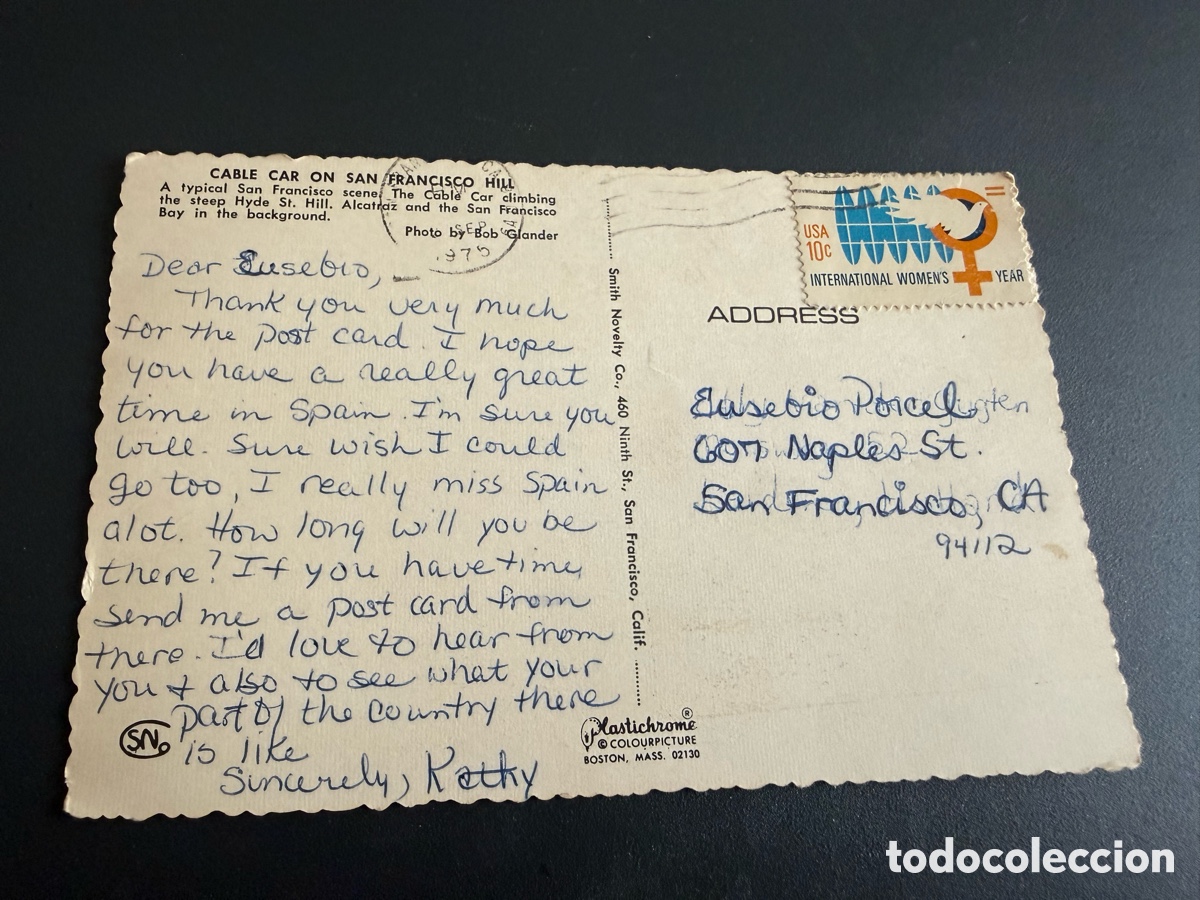 CABLE CAR ON SAN FRANCISCO HILL
A typical San Francisco scene. The Cable Car climbing
the steep Hyde St. Hill. Alcatraz and the San Francisco
Bay in the background.
Photo by Bob Glander
SEP
1975
Dear Eusebio,
Thank you very much
for the post card. I hope
you have a really great
time in Spain. I'm sure you
will. Sure wish I could
go too, I really miss Spain
alot. How long will you be
there? If you have time,
send me a post card from
there. I'd love to hear from
you & also to see what your
part of the country there
is like
Sincerely, Kathy
SN
Smith Novelty Co., 460 Ninth St., San Francisco, Calif.
Plastichrome®
© COLOURPICTURE
BOSTON, MASS. 02130
USA
10c
INTERNATIONAL WOMEN'S YEAR
ADDRESS
Eusebio Porcel
607 Naples St.
San Francisco, CA
94112
todocoleccion